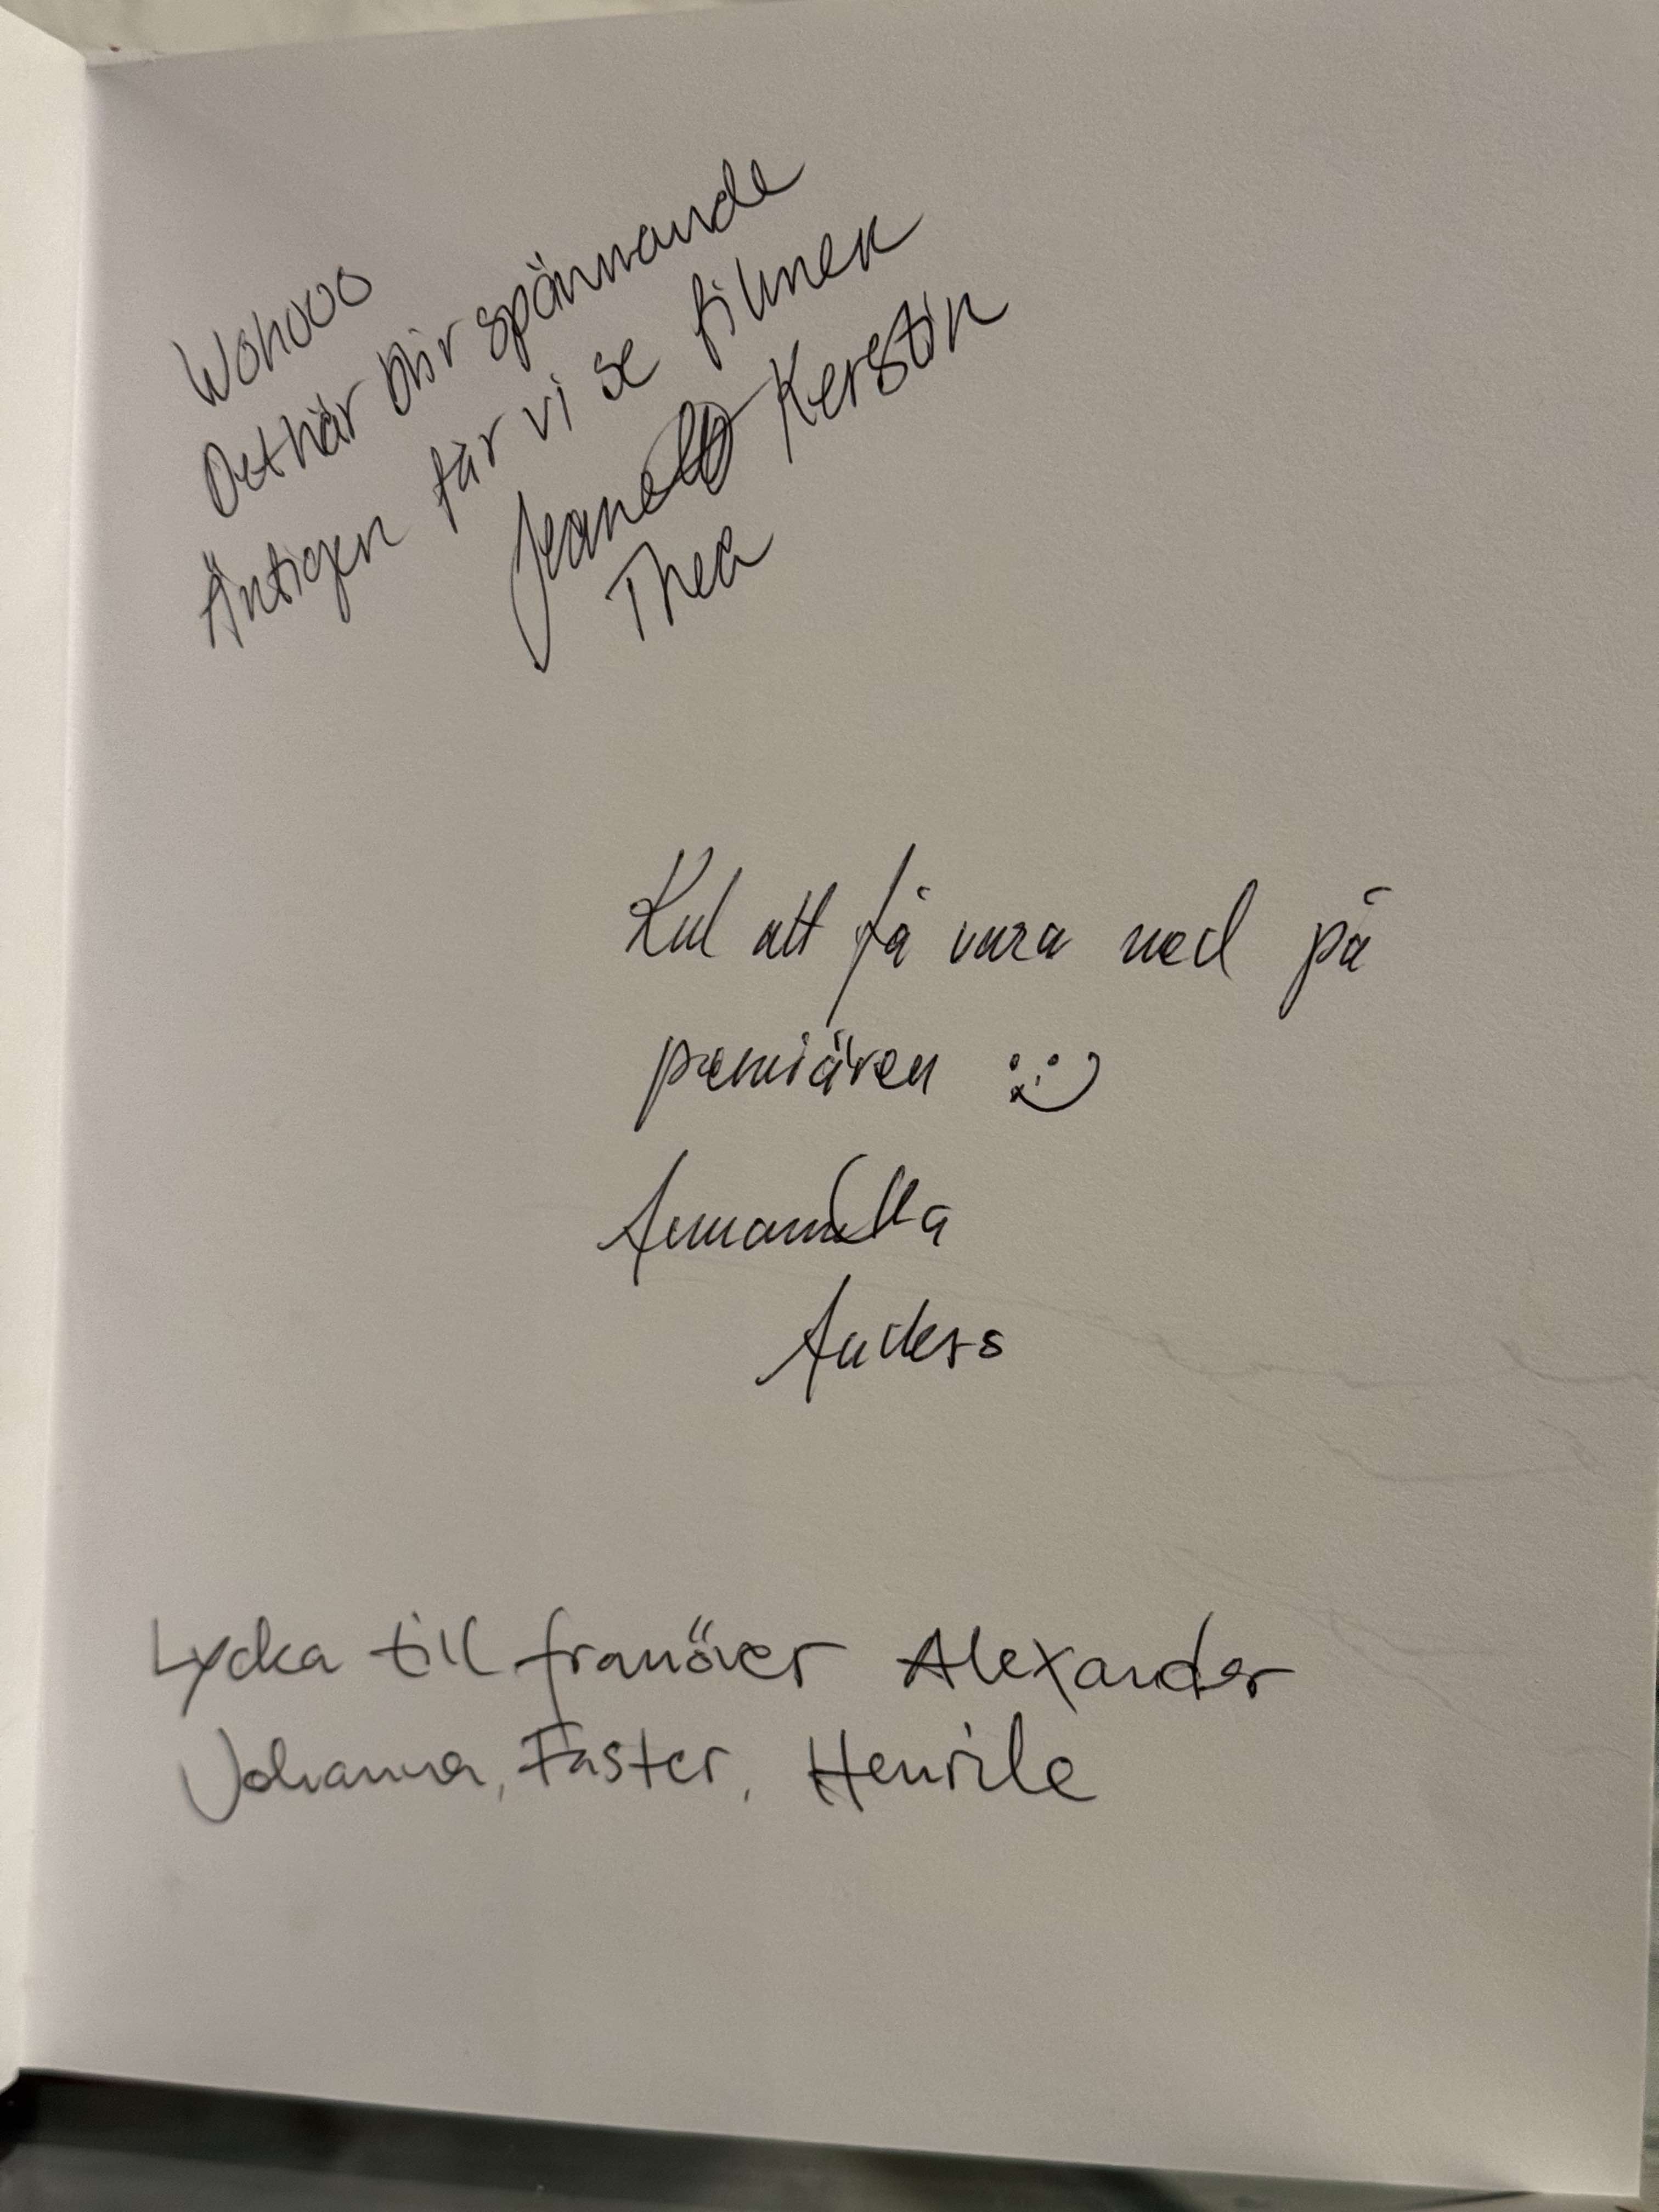 Wohooo
Det här blir spännande
Äntligen får vi se filmen
Jeanette Kerstin
Thea
Kul att få vara med på
premiären :)
Anders
Lycka till framöver Alexander
Johanna, Faster, Henrik